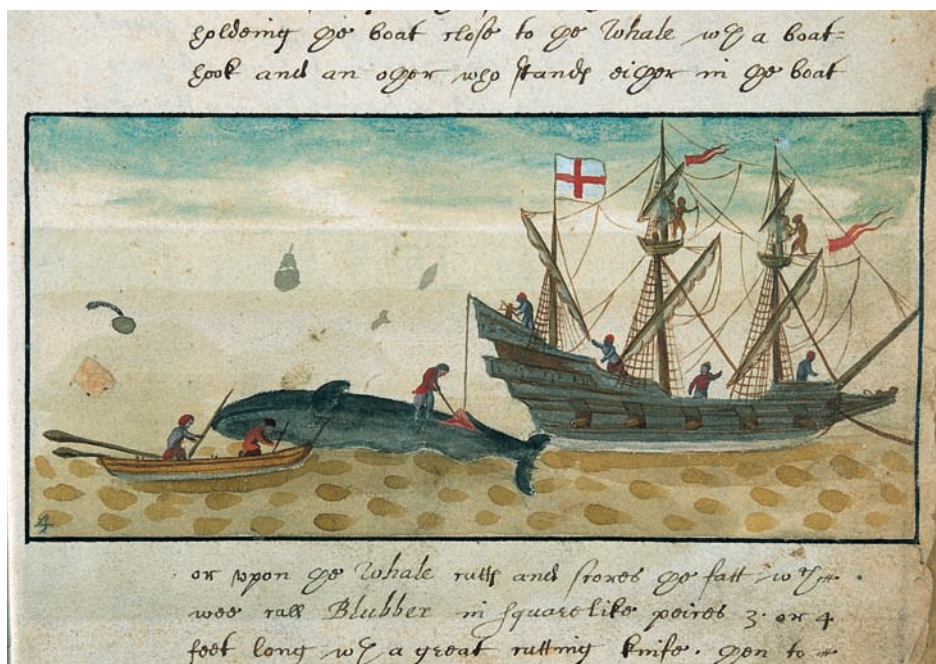 holdeing þe boat close to þe Whale wth a boat=
hook and an oþer who stands eiþer in þe boat
4
or vpon þe Whale cutts and scores þe fatt wch
wee call Blubber in square like peices 3 or 4
feet long wth a great cutting knife. þen to